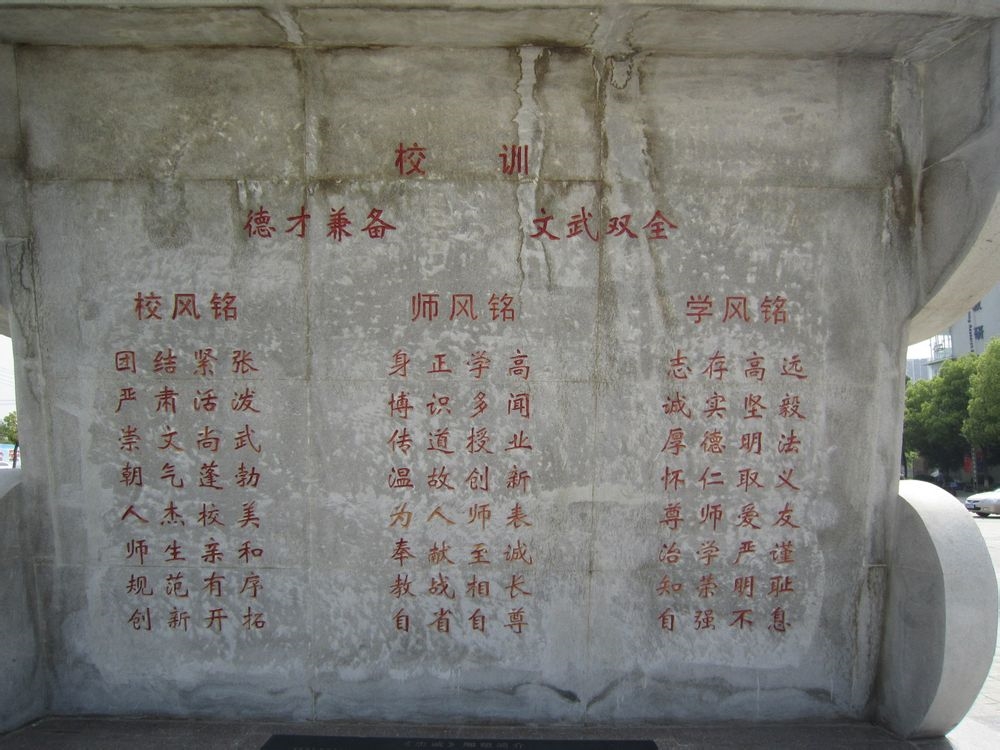 校训
德才兼备 文武双全
校风铭
团结紧张
严肃活泼
崇文尚武
朝气蓬勃
人杰校美
师生亲和
规范有序
创新开拓
师风铭
身正学高
博识多闻
传道授业
温故创新
为人师表
奉献至诚
教战相长
自省自尊
学风铭
志存高远
诚实坚毅
厚德明法
怀仁取义
尊师爱友
治学严谨
知荣明耻
自强不息